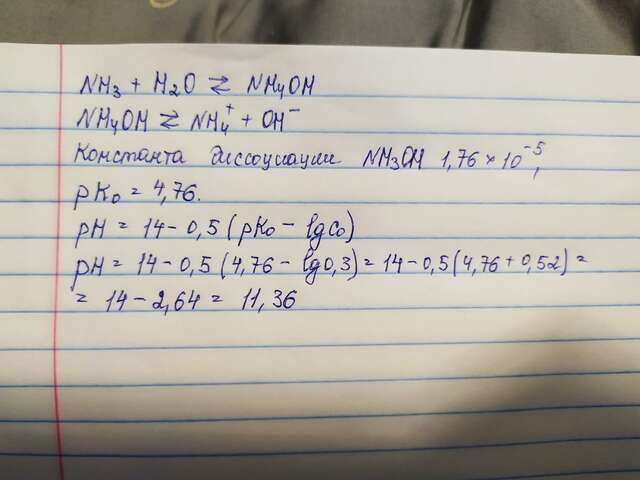 NH3 + H2O ⇄ NH4OH
NH4OH ⇄ NH4⁺ + OH⁻
Константа диссоциации NH3OH 1,76 × 10⁻⁵,
pKo = 4,76.
pH = 14 - 0,5 (pKo - lgCo)
pH = 14 - 0,5 (4,76 - lg0,3) = 14 - 0,5 (4,76 + 0,52) =
= 14 - 2,64 = 11,36